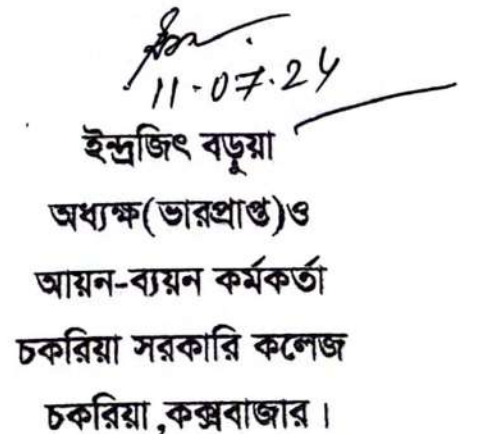 11.07.24
ইন্দ্রজিৎ বড়ুয়া
অধ্যক্ষ(ভারপ্রাপ্ত)ও
আয়ন-ব্যয়ন কর্মকর্তা
চকরিয়া সরকারি কলেজ
চকরিয়া,কক্সবাজার।